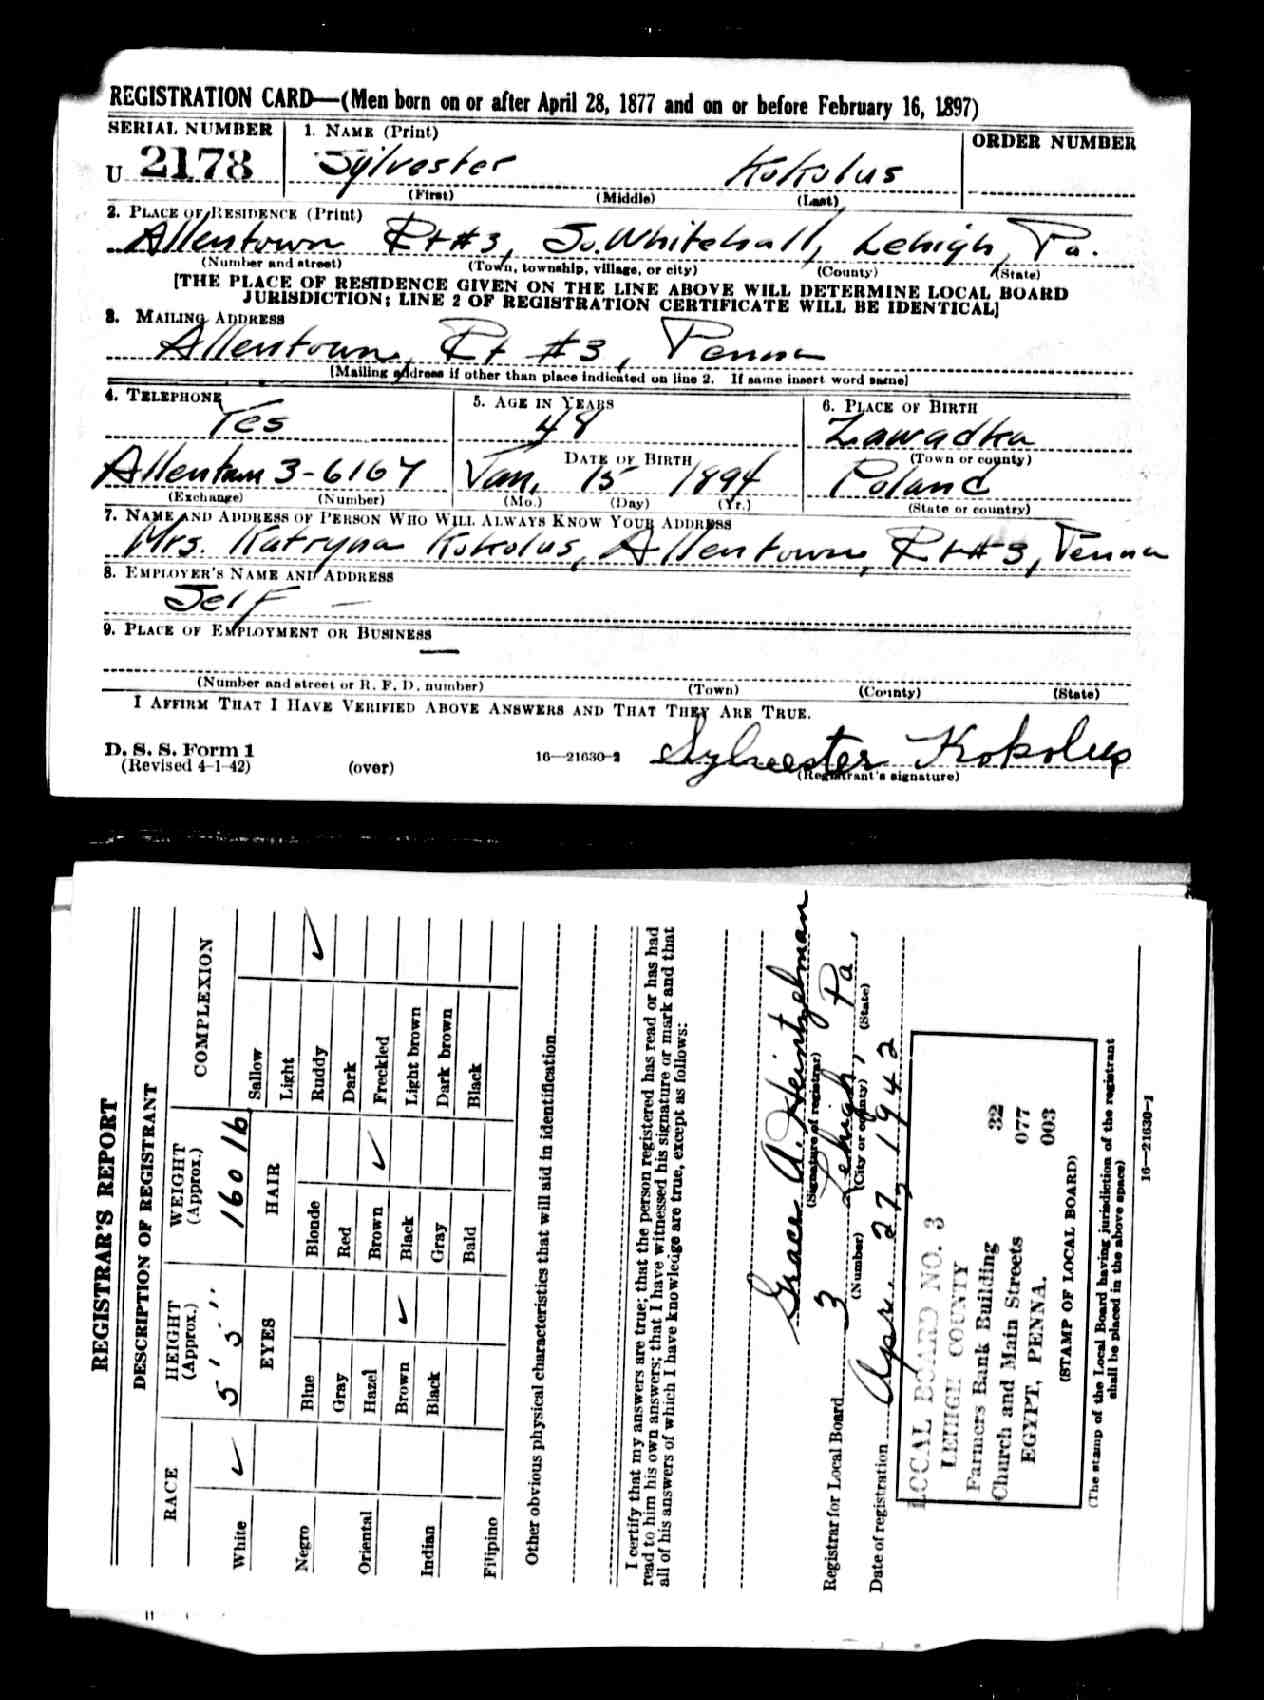 REGISTRATION CARD—(Men born on or after April 28, 1877 and on or before February 16, 1897)
SERIAL NUMBER
1. NAME (Print)
ORDER NUMBER
U 2178
Sylvester Kokolus
(First) (Middle) (Last)
2. PLACE OF RESIDENCE (Print)
Allentown Rt #3, So. Whitehall, Lehigh, Pa.
(Number and street) (Town, township, village, or city) (County) (State)
[THE PLACE OF RESIDENCE GIVEN ON THE LINE ABOVE WILL DETERMINE LOCAL BOARD
JURISDICTION; LINE 2 OF REGISTRATION CERTIFICATE WILL BE IDENTICAL]
3. MAILING ADDRESS
Allentown, Rt #3, Penna
[Mailing address if other than place indicated on line 2. If same insert word same]
4. TELEPHONE
Yes
Allentown 3-6167
(Exchange) (Number)
5. AGE IN YEARS
48
DATE OF BIRTH
Jan, 15 1894
(Mo.) (Day) (Yr.)
6. PLACE OF BIRTH
Zawadka
(Town or county)
Poland
(State or country)
7. NAME AND ADDRESS OF PERSON WHO WILL ALWAYS KNOW YOUR ADDRESS
Mrs. Katryna Kokolus, Allentown, Rt #3, Penna
8. EMPLOYER'S NAME AND ADDRESS
Self —
9. PLACE OF EMPLOYMENT OR BUSINESS
—
(Number and street or R. F. D. number) (Town) (County) (State)
I AFFIRM THAT I HAVE VERIFIED ABOVE ANSWERS AND THAT THEY ARE TRUE.
D. S. S. Form 1
(Revised 4-1-42)
(over)
16—21630-2
Sylvester Kokolus
(Registrant's signature)
REGISTRAR'S REPORT
DESCRIPTION OF REGISTRANT
RACE
HEIGHT (Approx.)
WEIGHT (Approx.)
COMPLEXION
White ✓
5' 5"
160 lb.
Negro
Oriental
Indian
Filipino
EYES
Blue
Gray
Hazel
Brown ✓
Black
HAIR
Blonde
Red
Brown ✓
Black
Gray
Bald
Sallow
Light
Ruddy ✓
Dark
Freckled
Light brown
Dark brown
Black
Other obvious physical characteristics that will aid in identification
I certify that my answers are true; that the person registered has read or has had
read to him his own answers; that I have witnessed his signature or mark and that
all of his answers of which I have knowledge are true, except as follows:
Grace A. Heintzelman
(Signature of registrar)
Registrar for Local Board 3 Lehigh, Pa
(Number) (City or county) (State)
Date of registration Apr. 27, 1942
LOCAL BOARD NO. 3
LEHIGH COUNTY
32
Farmers Bank Building
077
Church and Main Streets
003
EGYPT, PENNA.
(STAMP OF LOCAL BOARD)
(The stamp of the Local Board having jurisdiction of the registrant
shall be placed in the above space)
16—21630-2